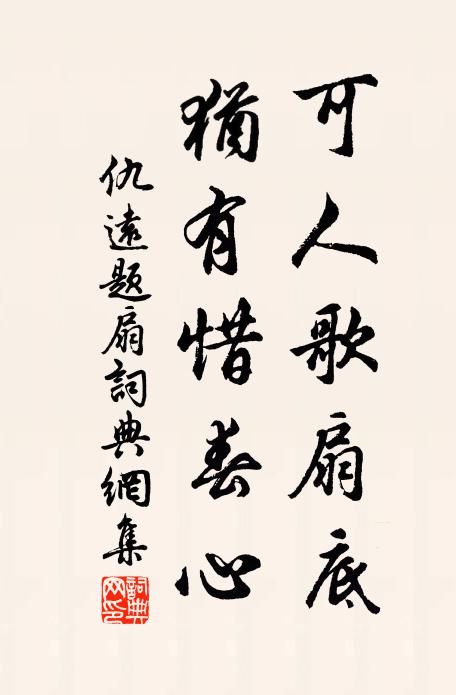 可人歌扇底
猶有惜春心
仇遠題扇詞典網集
詞典網印